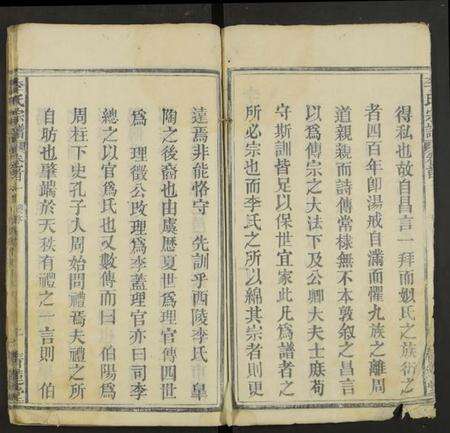 得私也故自昌言一拜而姒氏之族衍之
者四百年卽湯戒自滿而懼九族之離周
道親親而詩傳常棣無不本敦叙之昌言
以爲傳宗之大法下及公卿大夫士庶苟
守斯訓皆足以保世宜家此凡爲譜者之
所必宗也而李氏之所以綿其宗者則更
達焉非能恪守 先訓乎西陵李氏 皐
陶之後裔也由虞歷夏世爲理官傳四世
爲 理徵公改理爲李蓋理官亦曰司李
總之以官爲氏也又數傳而曰 伯陽爲
周柱下史孔子入周始問禮焉夫禮之所
自昉也肇端於天秩有禮之一言則 伯
李氏宗譜